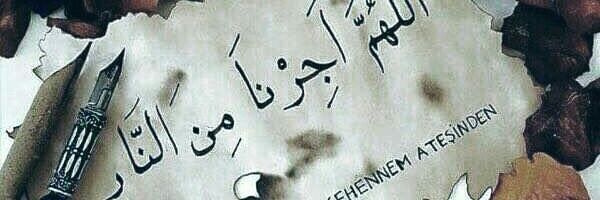 اَللّٰهُمَّ اَجِرْنَا مِنَ النَّارِ
CEHENNEM ATEŞİNDEN